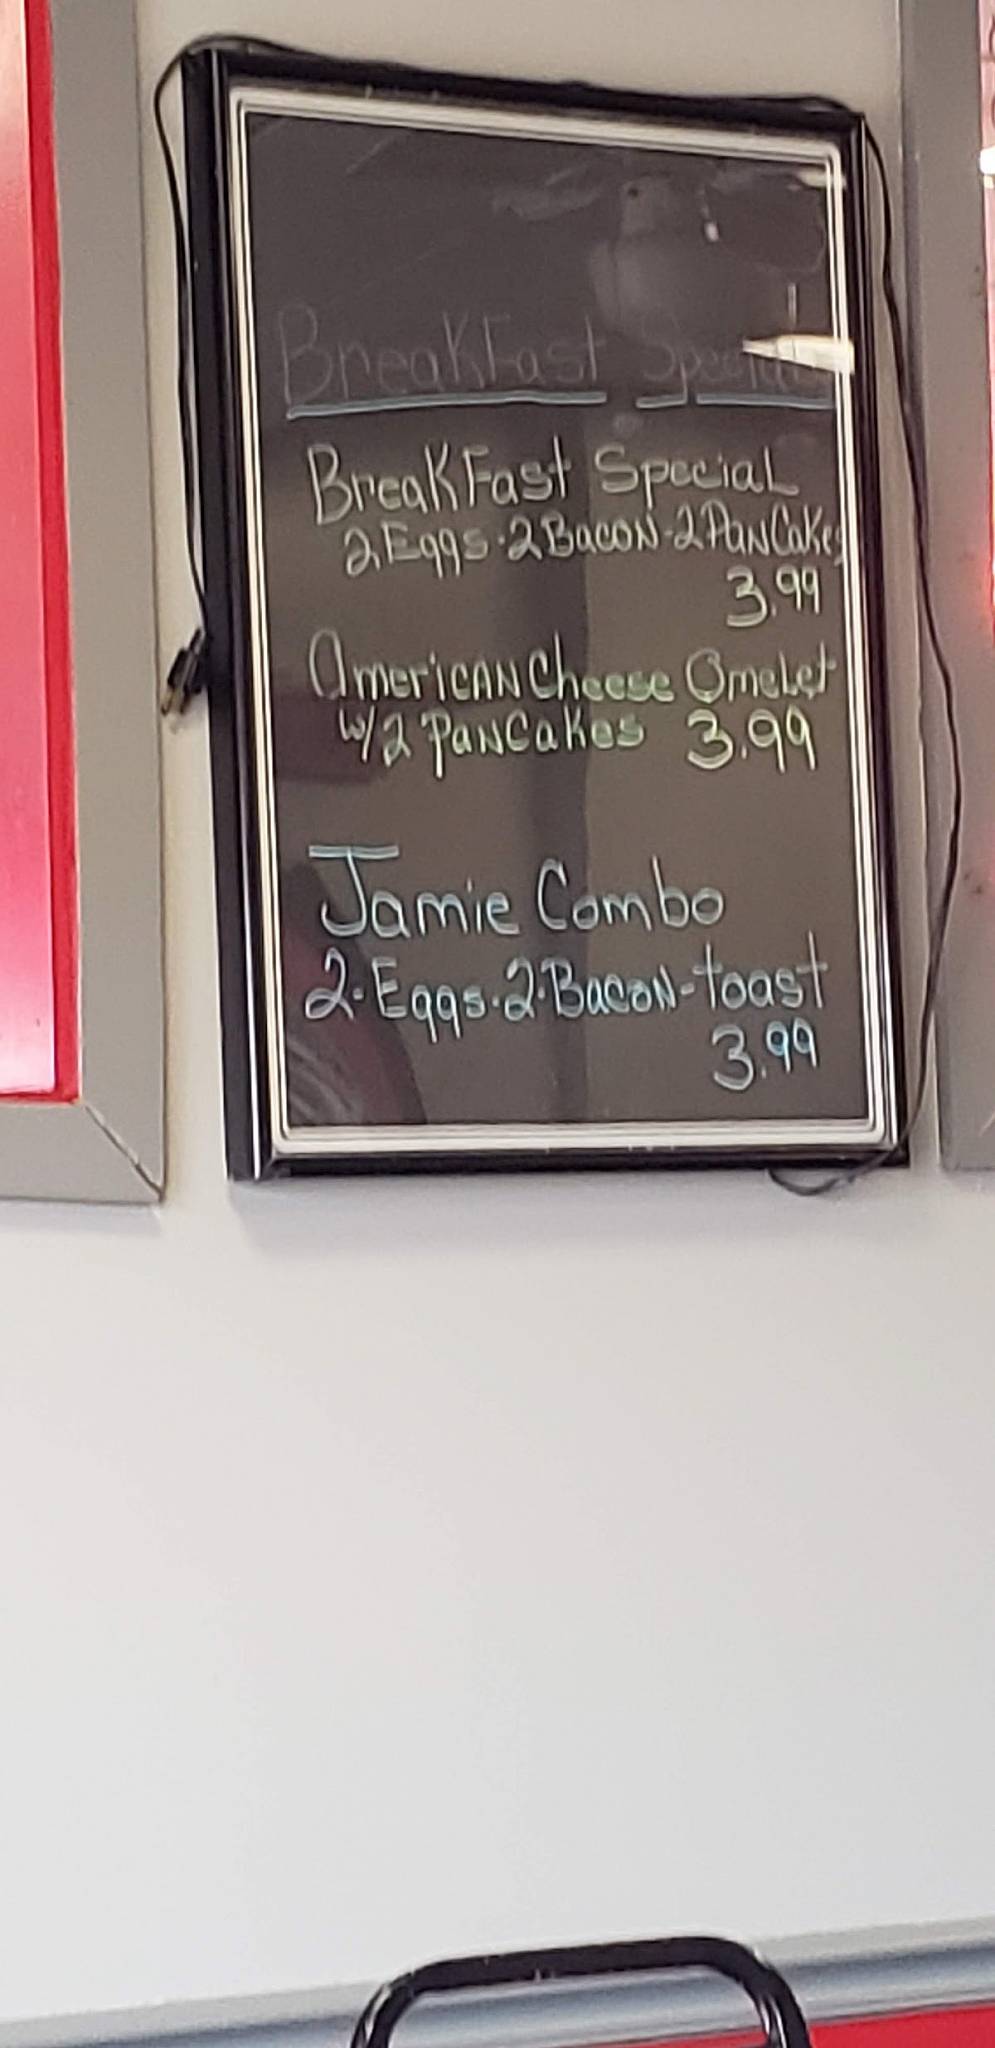 BreakFast Specials
BreakFast Special
2 Eggs · 2 Bacon - 2 PanCakes
3.99
American Cheese Omelet
w/2 PanCakes 3.99
Jamie Combo
2 - Eggs · 2 · Bacon - toast
3.99